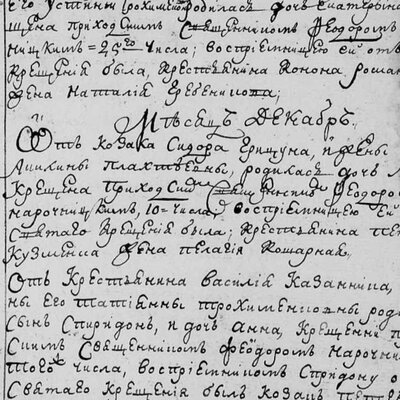 Его Устины Трохименк родилася дочъ Екатерина
щена приходскимъ Священникомъ Феодоромъ
ницкимъ = 25го Числа; воспріемницею ей отъ
крещенія была, крестянина Конона
жена Наталія
Мѣсяцъ Декабръ.
Отъ козака Сидора Ерищуна, и жены
родилася дочъ
Крещена приходским Священник Феодоро
нарочницкимъ, 10 = Числа, воспріемницею Ей
святаго Крещенія была; крестянина
Кузменка жена Пелагія Кошарная.
Отъ Крестянина василія Казанника,
ны его Татіянны Трохименковы роди
сынъ Спиридонъ, и дочъ Анна, Крещенни п
скимъ Священникомъ Феодоромъ Нарочни
того Числа, воспріемникомъ Спиридону о
Святаго Крещенія былъ Козакъ